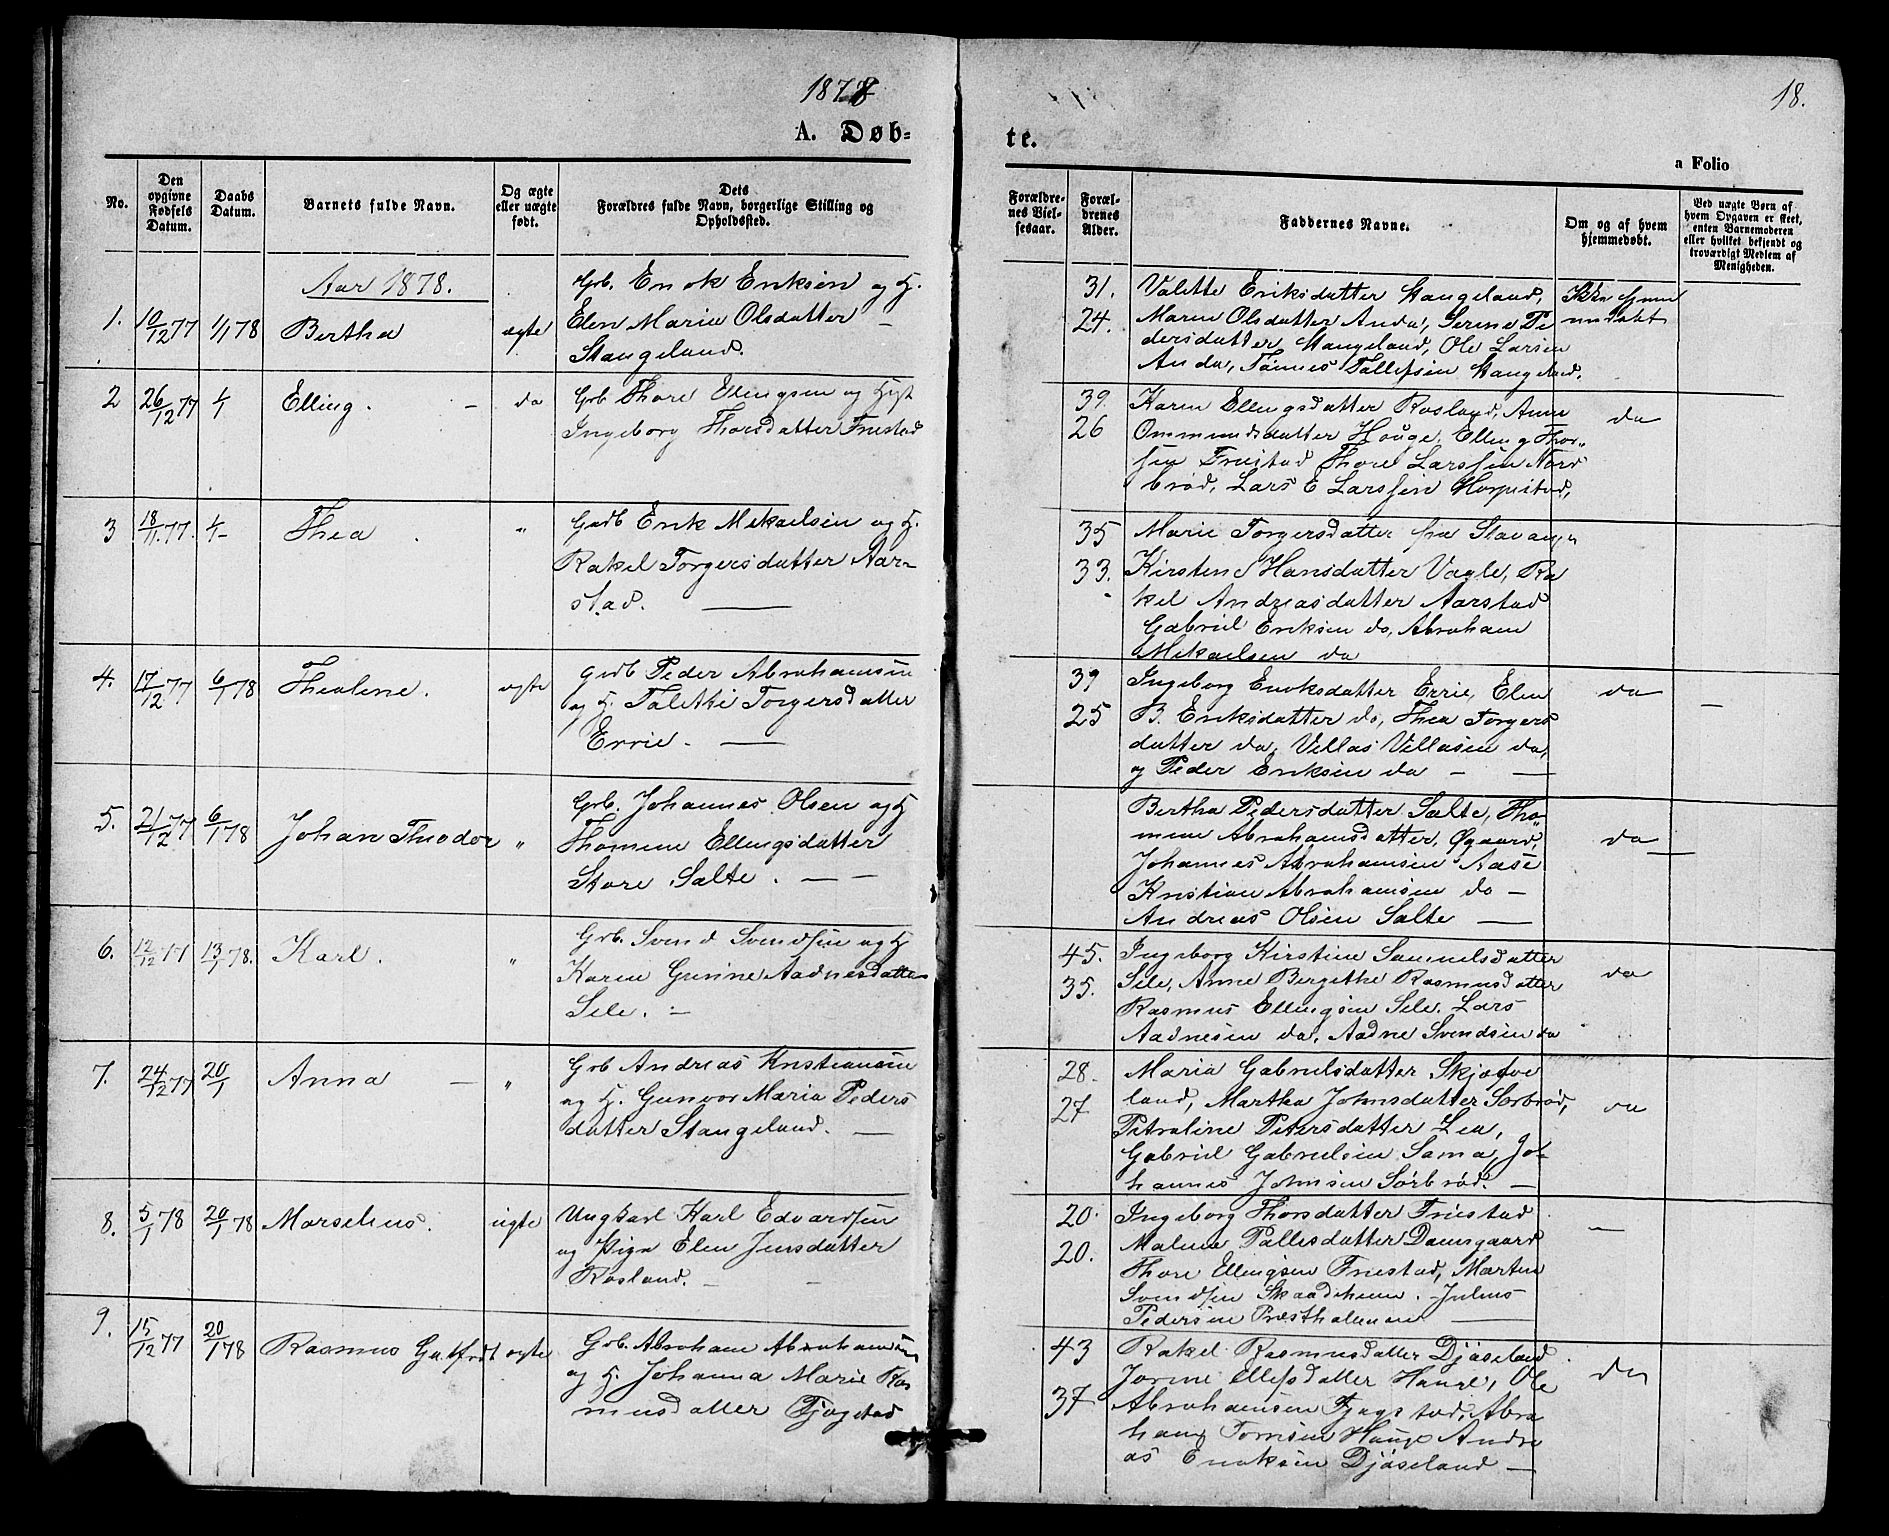 1878
18.
A. Døb-
te.
a Folio
No.
Den
opgivne
Fødsels
Datum.
Daabs
Datum.
Barnets fulde Navn.
Og ægte
eller uægte
født.
Dets
Forældres fulde Navn, borgerlige Stilling og
Opholdssted.
Forældre-
nes Viel-
sesaar.
Foræl-
drenes
Alder.
Faddernes Navne.
Om og af hvem
hjemmedøbt.
Ved uægte Børn af
hvem Opgaven er skeet,
enten Barnemoderen
eller hvilket bekjendt og
troværdigt Medlem af
Menigheden.
Aar 1878.
1. 10/12 77 1/1 78 Bertha ægte
Grb. Enok Eriksen og H.
Elen Maria Olsdatter
Stangeland.
31.
24.
Valette Eriksdatter Stangeland,
Maren Olsdatter Anda, Serine Pe
dersdatter Stangeland, Ole Larsen
Anda, Tønnes Tollefsen Stangeland.
Ikke hjem
medøbt
2 26/12 77 4/1 Elling. do
Grb Thore Ellingsen og Hust
Ingeborg Thorsdatter Friestad
39.
26
Karen Ellingsdatter Rosland, Anne
Ommundsdatter Houge, Elling Thor-
sen Friestad Thore Larssen Nord
brød, Lars E Larssen Horpestad,
do
3 18/11 77. 4/1 Thea "
Gadb Erik Mikaelsen og H.
Rakel Torgersdatter Aar-
stad.
35
33.
Marie Torgersdatter fra Stavanger
Kirstene Hansdatter Vagle, Ra
kel Andreasdatter Aarstad
Gabriel Eriksen do, Abraham
Mikaelsen do
4. 17/12 77 6/1 78 Thealene. ægte
Gadb Peder Abrahamsen
og H. Taletti Torgersdatter
Errie.
39
25
Ingeborg Enoksdatter Errie, Elen
B. Eriksdatter do, Thea Torgers
datter do, Villas Villasen do,
og Peder Eriksen do
do
5. 21/12 77 6/1 78 Johan Theodor "
Grb. Johannes Olsen og H
Thomine Ellingsdatter
Store Salte.
Bertha Pedersdatter Salte, Tho-
mine Abrahamsdatter, Øgaard,
Johannes Abrahamsen Aase
Kristian Abrahamsen do
Andreas Olsen Salte
do
6. 12/12 77 13/1 78. Karl. "
Grb. Svend Svendsen og H
Karen Gurine Aadnesdatter
Sele.
45.
35.
Ingeborg Kirstine Samuelsdatter
Sele, Anne Bergithe Rasmusdatter
Rasmus Ellingsen Sele, Lars
Aadnesen do, Aadne Svendsen do
do
7. 24/12 77 20/1 Anna "
Grb Andreas Kristiansen
og H. Gunvor Maria Peders
datter Stangeland.
28.
27
Maria Gabrielsdatter Skjæve
land, Martha Johnsdatter Sørbrød,
Petraline Petersdatter Lea,
Gabriel Gabrielsen Soma, Jo-
hannes Johnsen Sørbrød.
do
8. 5/1 78 20/1 78 Marselius. uægte
Ungkarl Karl Edvardsen
og Pige Elen Jensdatter
Rosland.
20.
20.
Ingeborg Thorsdatter Friestad
Malena Pallesdatter Damsgaard
Thore Ellingsen Friestad, Marten
Svendsen Skaadeheim. Julius
Pedersen Præstholmen
9. 15/12 77 20/1 78 Rasmus Gutfrdt ægte
Grb. Abraham Abrahamsen
og H. Johanna Marie Ras
musdatter Tjøgstad
43
37
Rakel Rasmusdatter Djøseland
Jorine Ellefsdatter Hauge, Ole
Abrahamsen Tjøgstad, Abra
ham Tørresen Hauge Andre
as Enoksen Djøseland
do